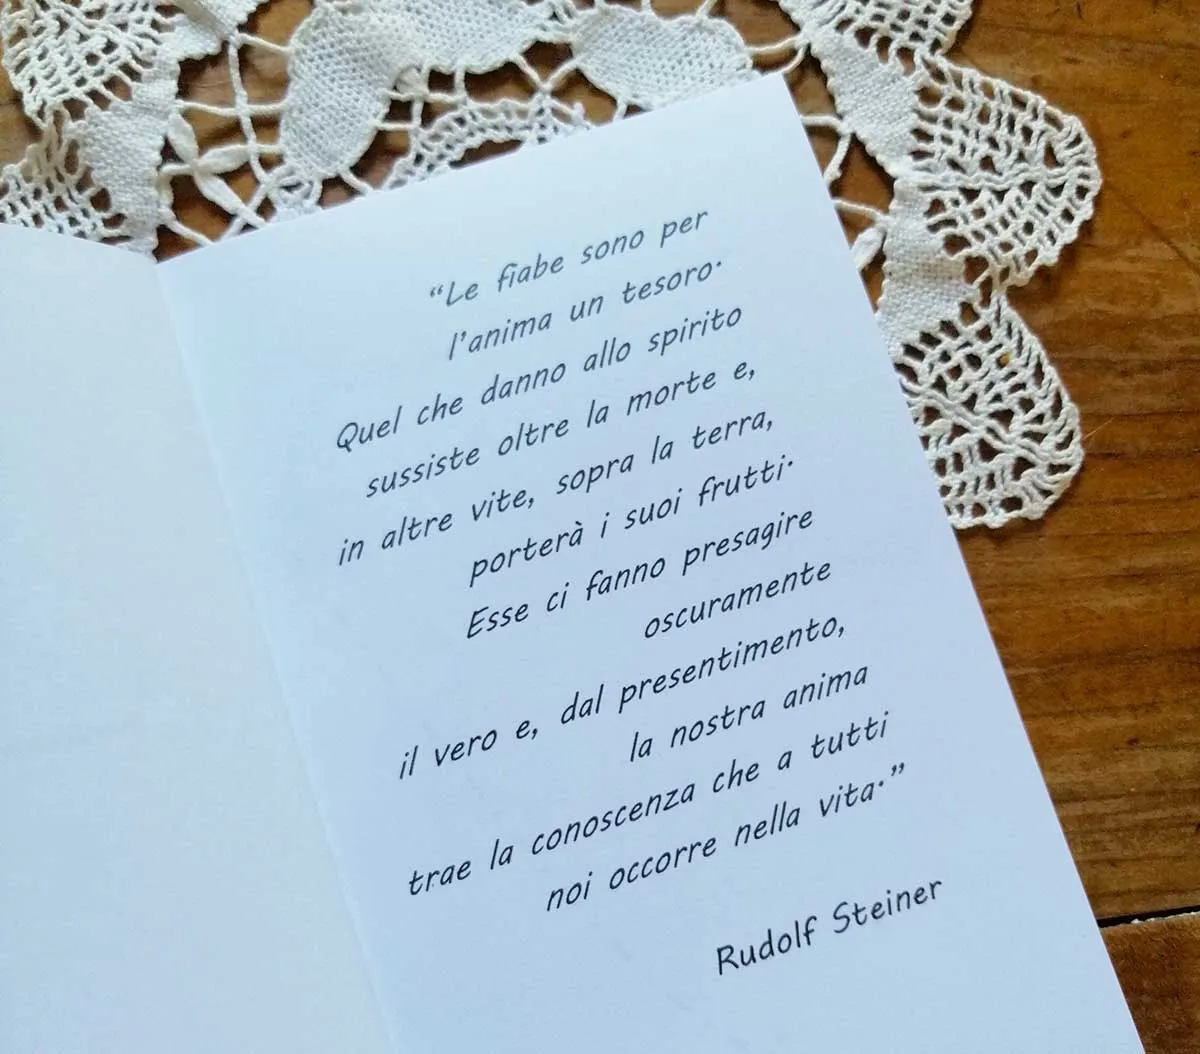 “Le fiabe sono per
l’anima un tesoro.
Quel che danno allo spirito
sussiste oltre la morte e,
in altre vite, sopra la terra,
porterà i suoi frutti.
Esse ci fanno presagire
oscuramente
il vero e, dal presentimento,
la nostra anima
trae la conoscenza che a tutti
noi occorre nella vita.”
Rudolf Steiner